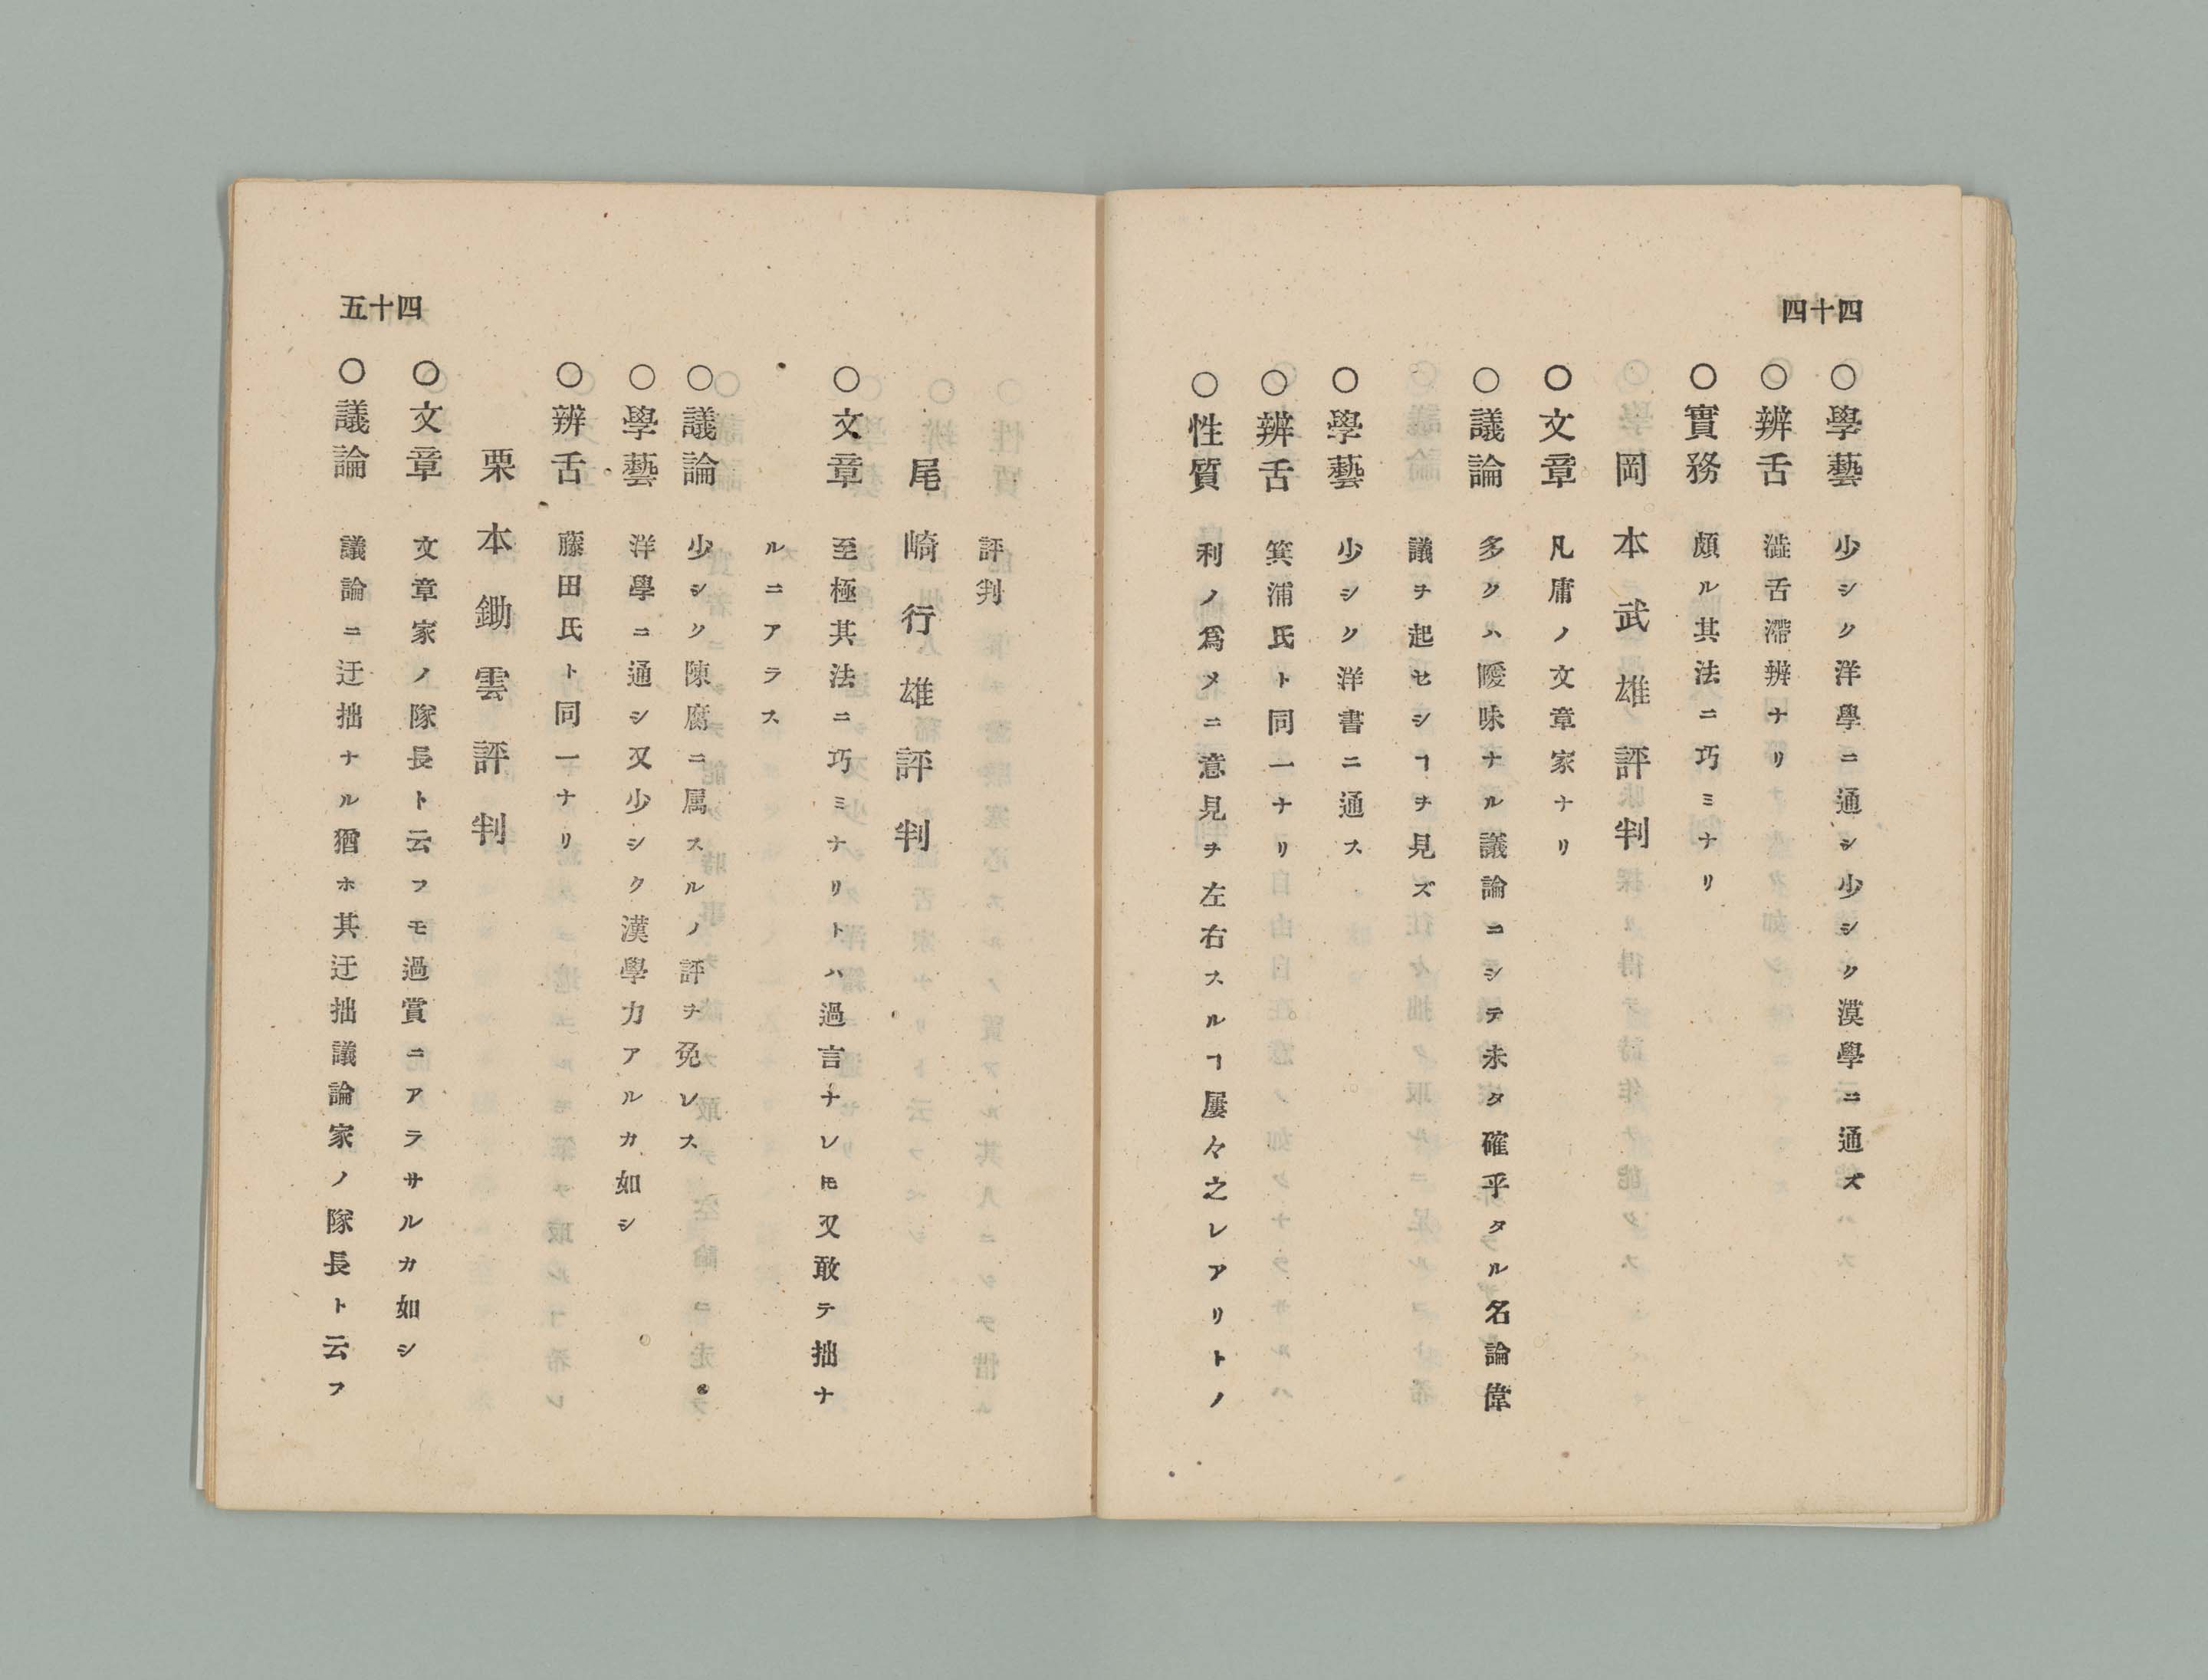 四十四
○學藝 少シク洋學ニ通シ少シク漢學ニ通ズ
○辨舌 澁舌滯辨ナリ
○實務 頗ル其法ニ巧ミナリ
岡本武雄評判
○文章 凡庸ノ文章家ナリ
○議論 多クハ曖昧ナル議論ニシテ未タ確乎タル名論偉
議ヲ起セシヿヲ見ズ
○學藝 少シク洋書ニ通ス
○辨舌 箕浦氏ト同一ナリ
○性質 利ノ爲メニ意見ヲ左右スルヿ屢々之レアリトノ
四十五
評判
尾崎行雄評判
○文章 至極其法ニ巧ミナリトハ過言ナレ𪜈又敢テ拙ナ
ルニアラス
○議論 少シク陳腐ニ属スルノ評ヲ免レス
○學藝 洋學ニ通シ又少シク漢學力アルカ如シ
○辨舌 藤田氏ト同一ナリ
栗本鋤雲評判
○文章 文章家ノ隊長ト云フモ過賞ニアラサルカ如シ
○議論 議論ニ迂拙ナル猶ホ其迂拙議論家ノ隊長ト云フ